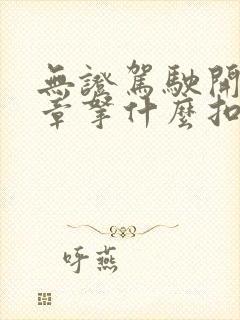 無證駕駛開
章拏什麼扣
呼燕